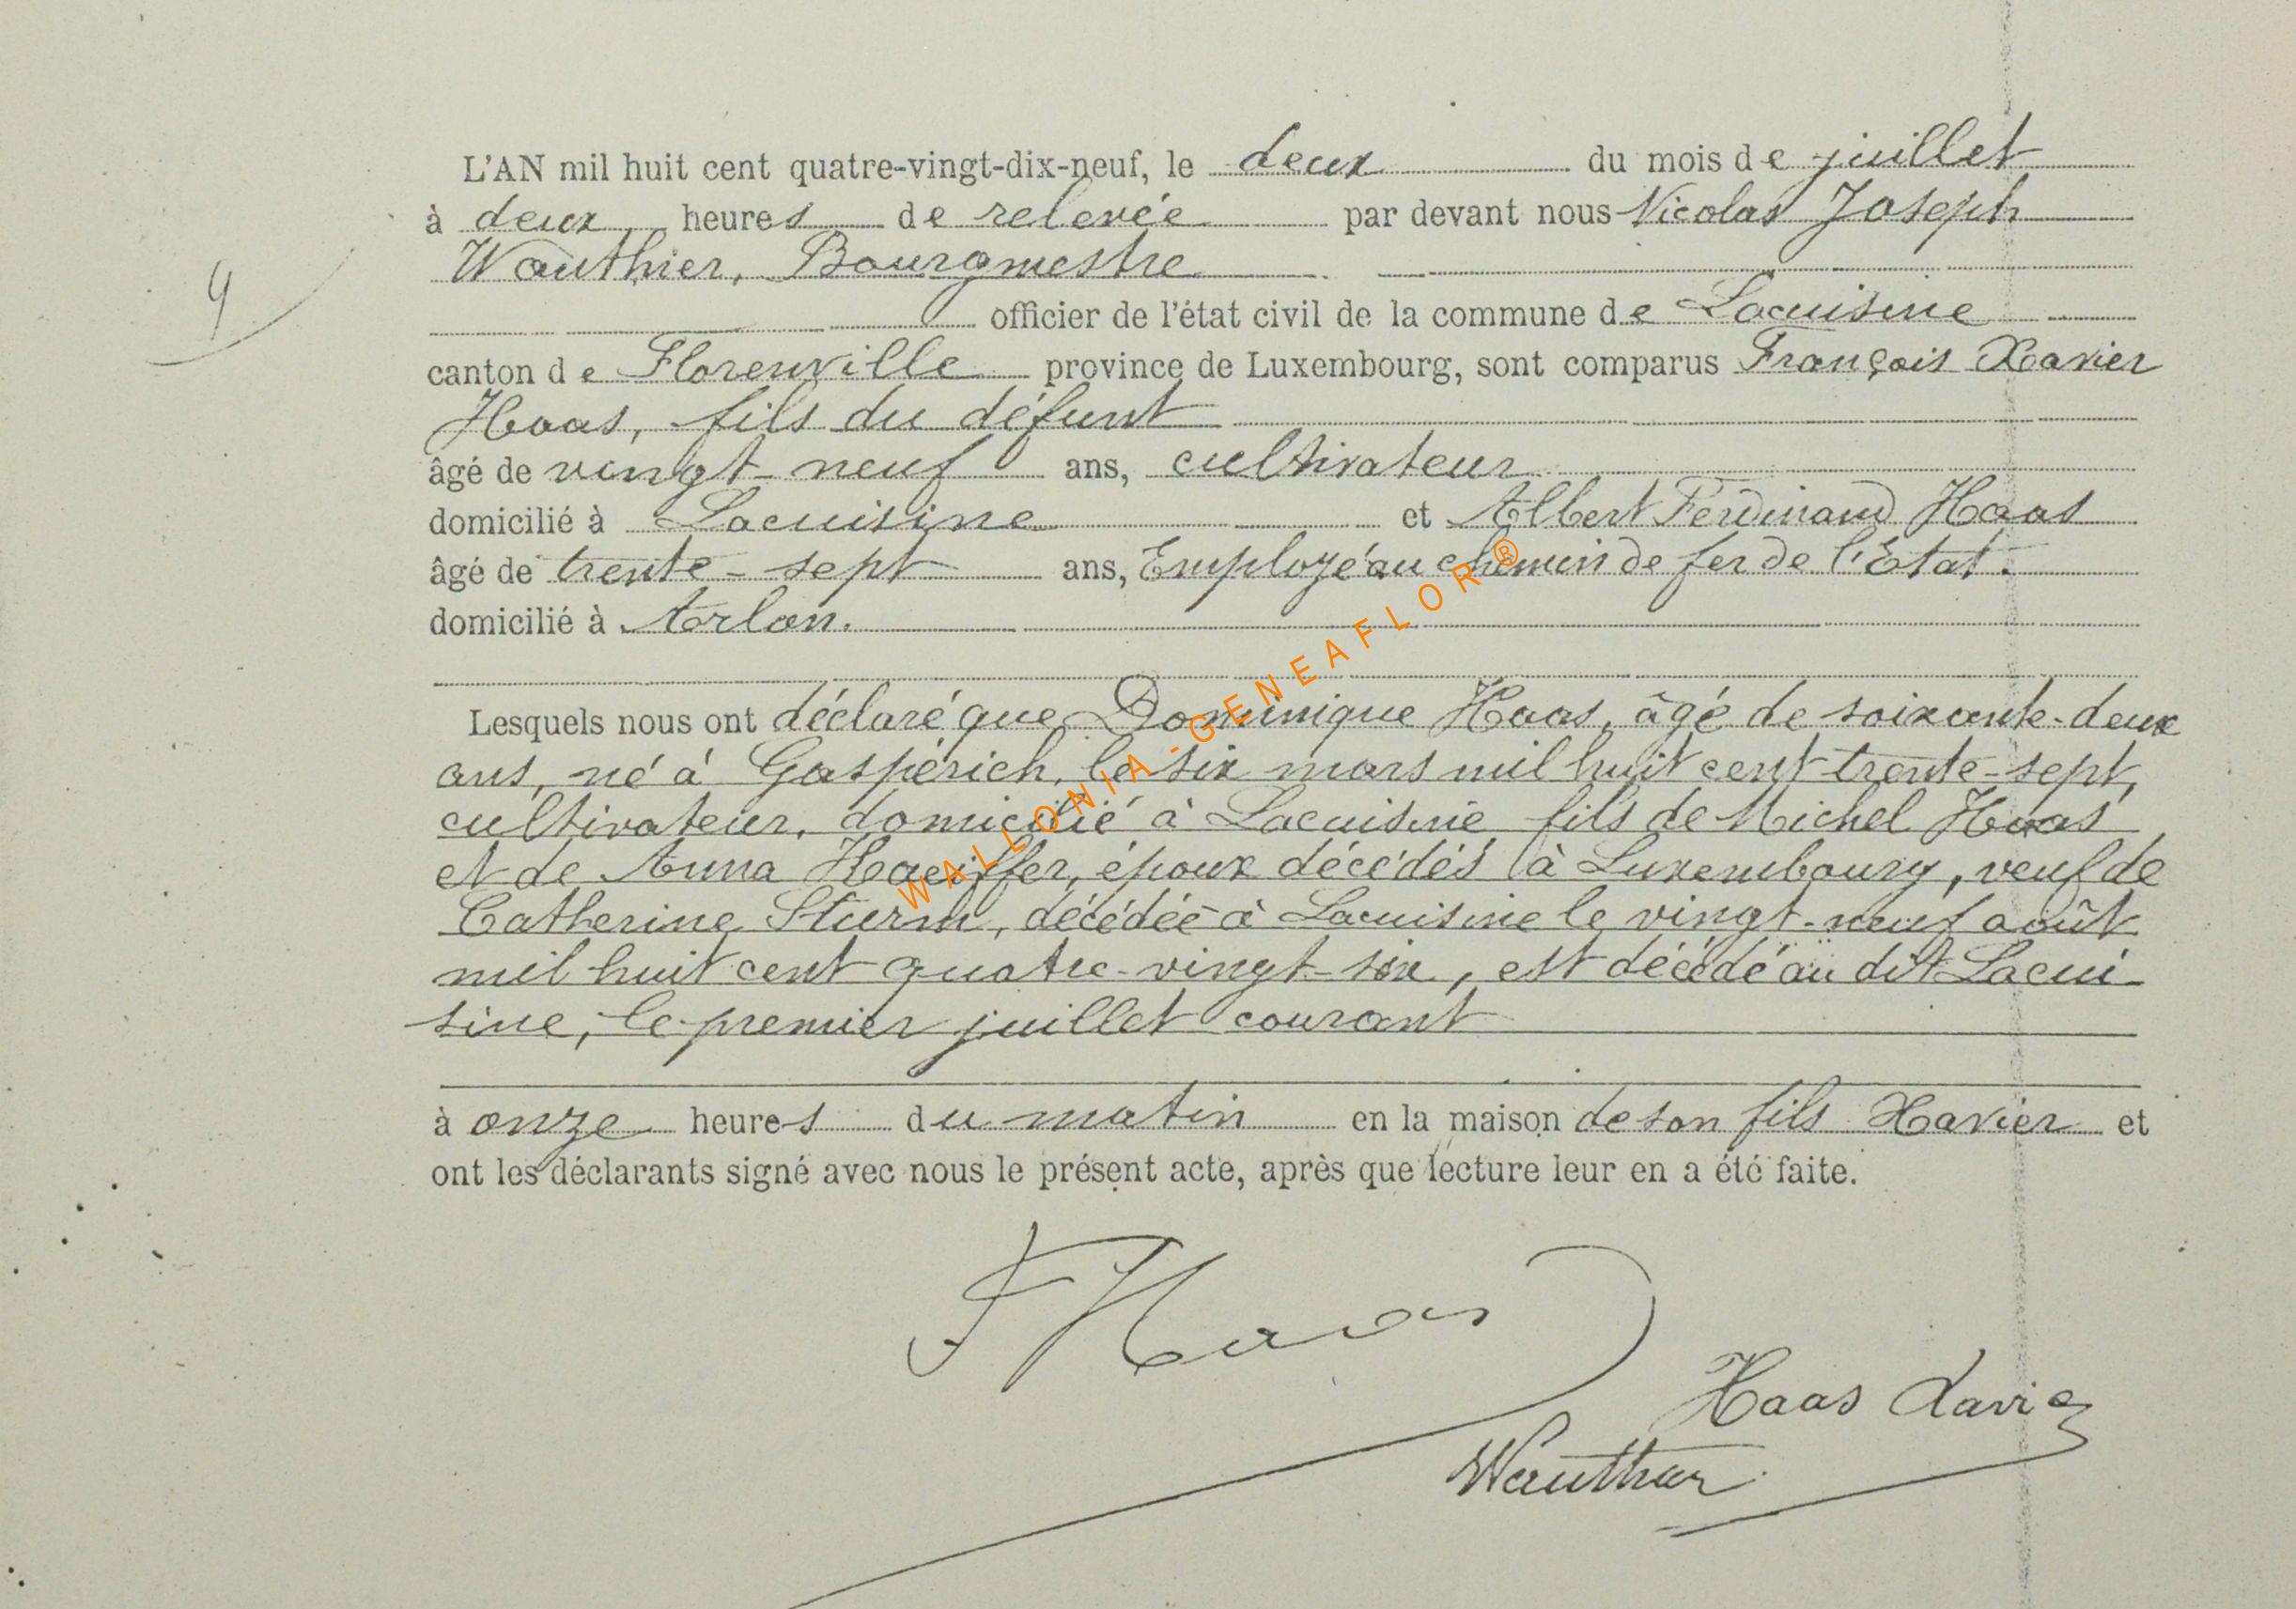 L'AN mil huit cent quatre-vingt-dix-neuf, le deux du mois de juillet
à deux heures de relevée par devant nous Nicolas Joseph
Wauthier, Bourgmestre
officier de l'état civil de la commune de Lacuisine
canton de Florenville province de Luxembourg, sont comparus François Xavier
Haas, fils du défunt
âgé de vingt-neuf ans, cultivateur
domicilié à Lacuisine et Albert Ferdinand Haas
âgé de trente-sept ans, Employé au chemin de fer de l'Etat.
domicilié à Arlon.
Lesquels nous ont déclaré que Dominique Haas, âgé de soixante-deux
ans, né à Gaspérich, le six mars mil huit cent trente-sept,
cultivateur, domicilié à Lacuisine, fils de Michel Haas
et de Anna Haeiffer, époux décédés à Luxembourg, veuf de
Catherine Sturm, décédée à Lacuisine le vingt-neuf août
mil huit cent quatre-vingt-six, est décédé au dit Lacui-
sine, le premier juillet courant
à onze heures du matin en la maison de son fils Xavier et
ont les déclarants signé avec nous le présent acte, après que lecture leur en a été faite.
9
WALLONIA-GENEAFLOR®
F Haas
Haas Xavier
Wauthier